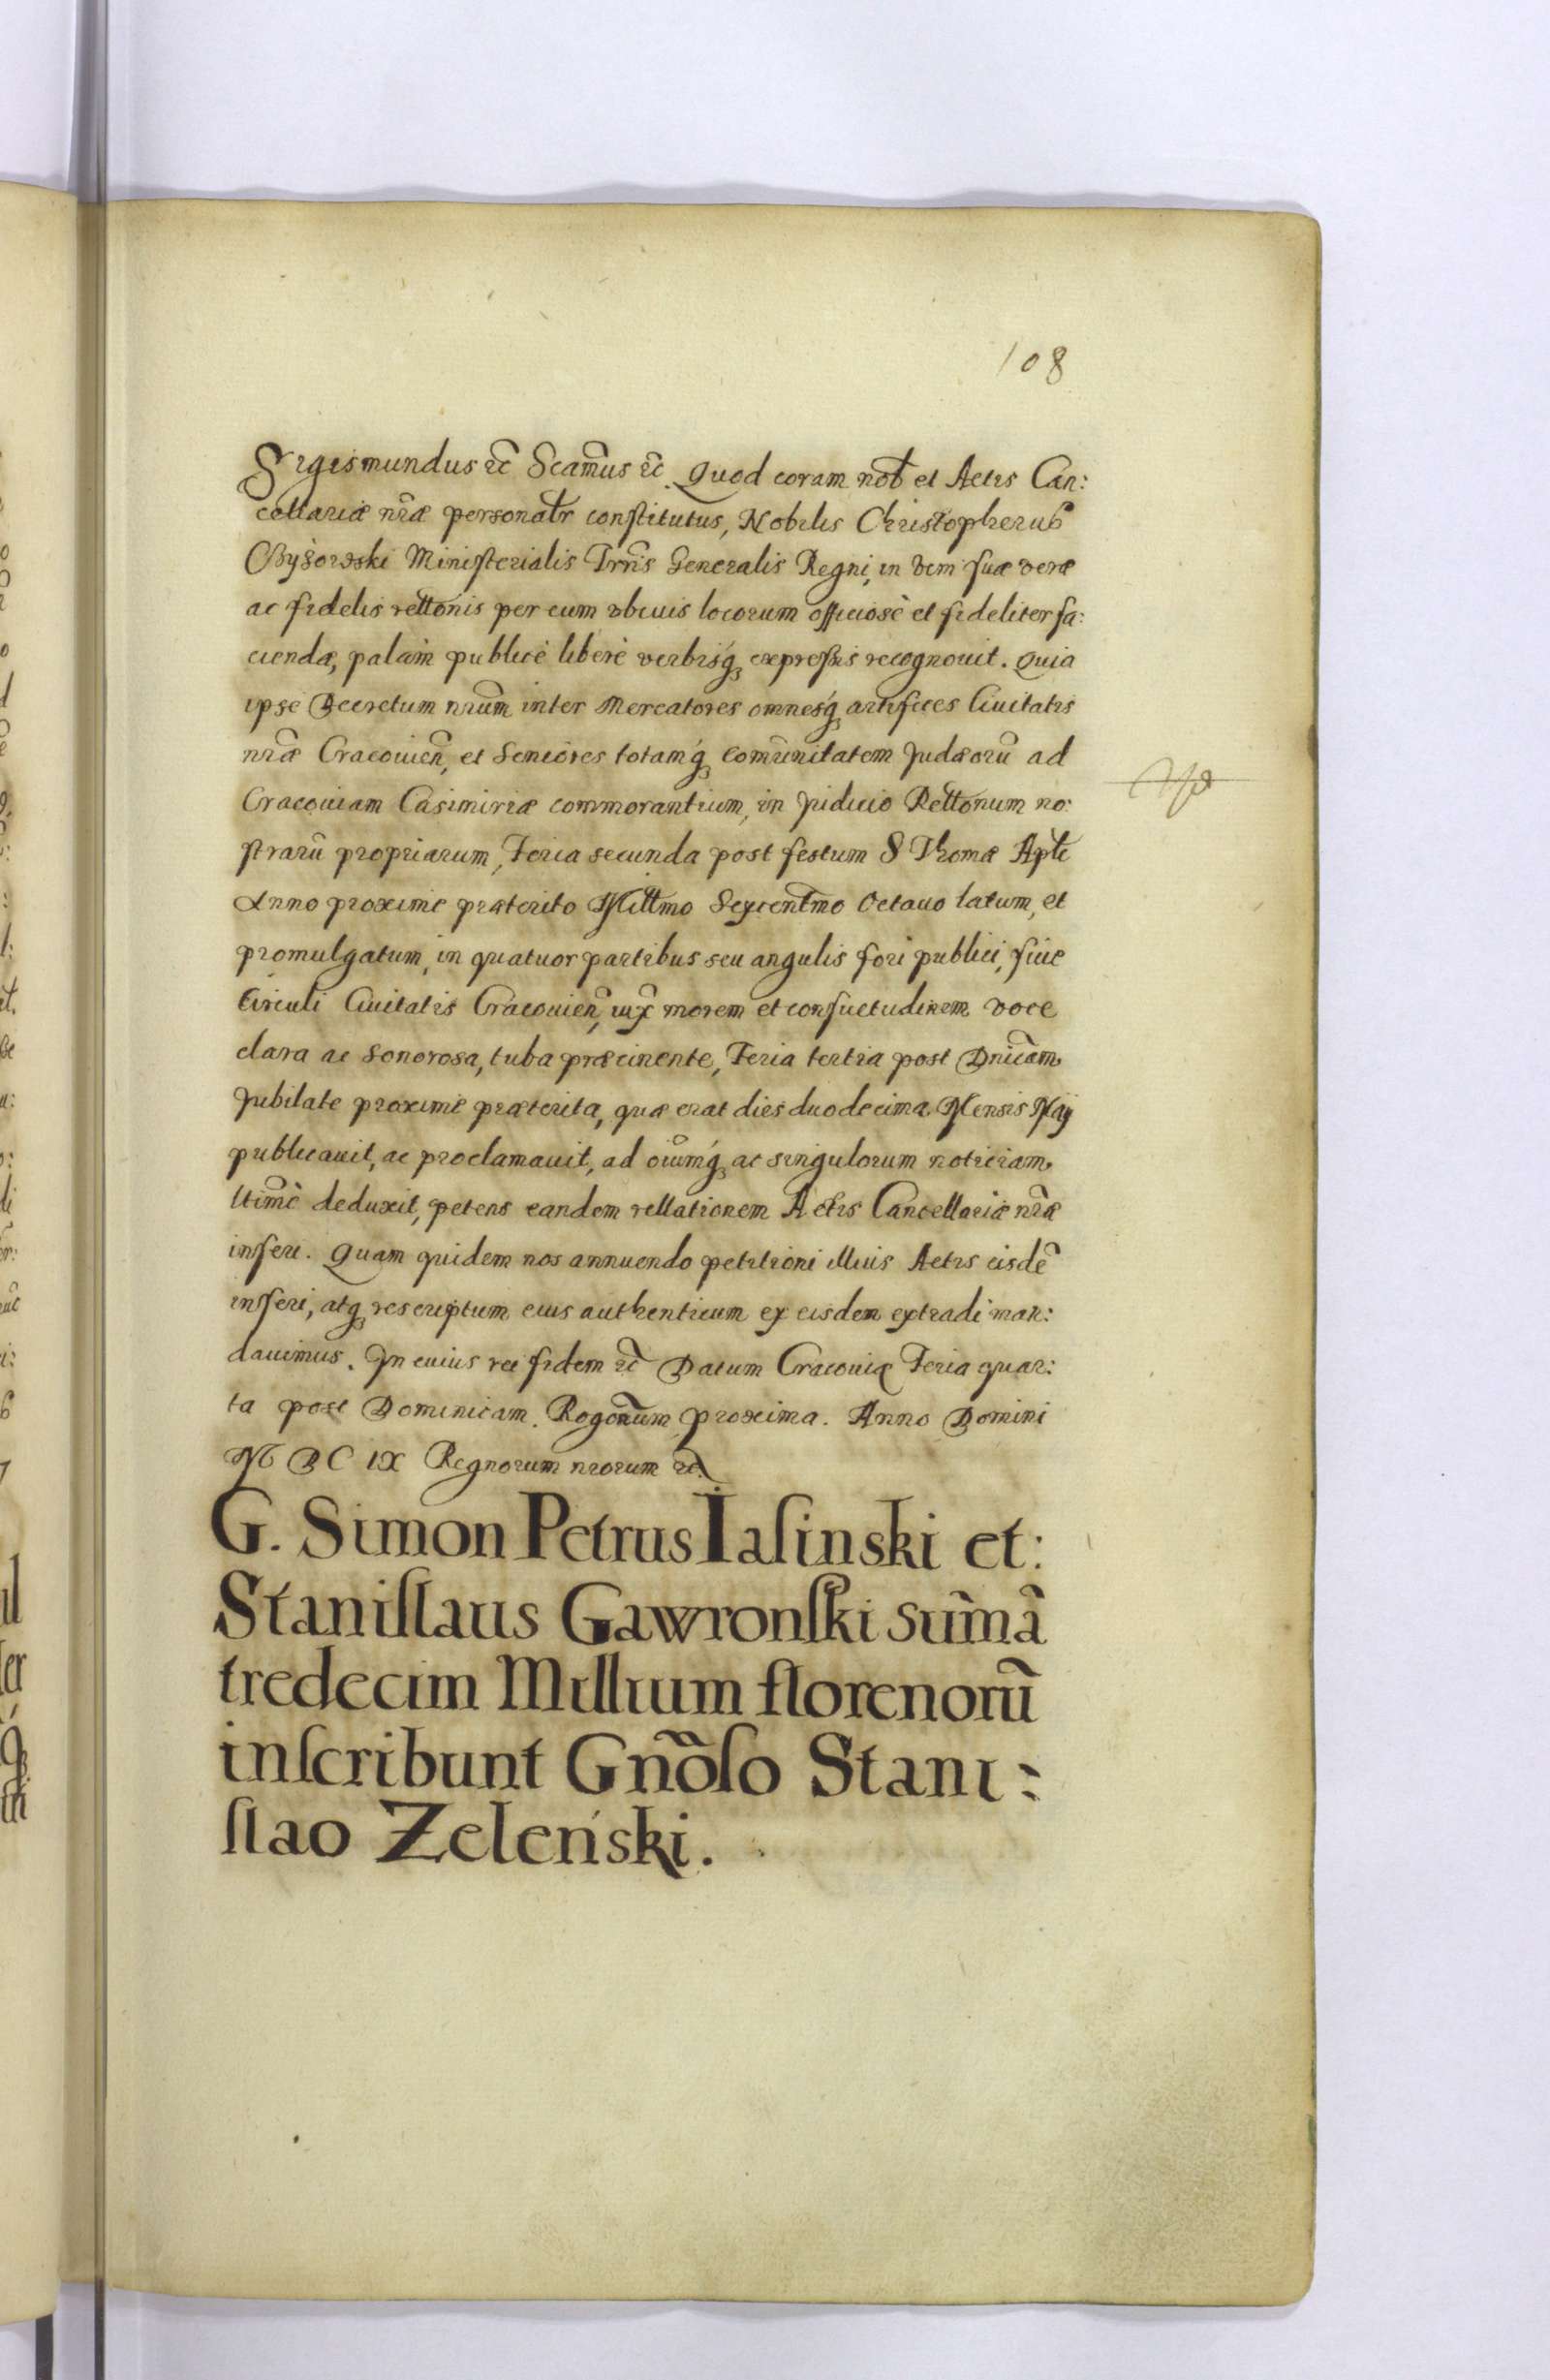 108
Sigismundus rc̃ Scam̃us rc̃. Quod coram nob̃ et Actis Can:
cellariæ nr̃æ personalr̃ constitutus, Nobilis Christopherus
Ministerialis Trr̃is Generalis Regni, in vim suæ veræ
ac fidelis rel̃lonis per eum vbiuis locorum officiosè et fideliter fa:
ciendæ, palàm publicè liberè verbisq́ꝫ expressis recognouit. Quia
ipse Decretum nr̃um inter Mercatores omnesq́ꝫ artifices Ciuitatis
nr̃æ Cracouien̄, et Seniores totamq́ꝫ com̃unitatem Judæorũ ad
Cracouiam Casimiriæ commorantium, in Judicio Rel̃lonum no:
strarũ propriarum, Feria secunda post festum S Thomæ Apl̃i
Anno proximè præterito Mill̃mo Sexcent̃mo Octauo latum, et
promulgatum, in quatuor partibus seu angulis fori publici, siue
Circuli Ciuitatis Cracouien̄, iux̃ morem et consuetudinem voce
clara ac sonorosa, tuba præcinente, Feria tertia post Dnic̃am
Jubilate proximè præterita, quæ erat dies duodecima Mensis Maij
publicauit, ac proclamauit, ad oiũmq́ꝫ ac singulorum noticiam
ltim̃è deduxit, petens eandem rellationem Actis Cancellariæ nr̃æ
inseri. Quam quidem nos annuendo petitioni illius Actis eisdẽ
inseri, atqꝫ rescriptum eius authenticum ex eisdem extradi man:
dauimus. In cuius rei fidem rc̃ Datum Cracouiæ Feria quar:
ta post Dominicam Rogõnum proxima. Anno Domini
M DC IX Regnorum nrorum rc̃.
G. Simon Petrus Iasinski et:
Stanislaus Gawronski sum̃ã
tredecim Millium florenorũ
inscribunt Gnõso Stani:
slao Zeleński.